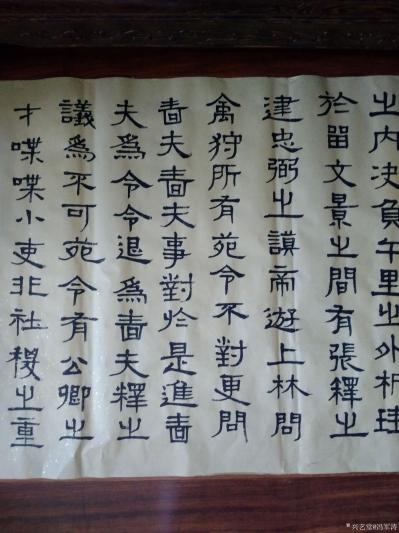 之内決負千里之外析珪
於留文景之間有張釋之
建忠弼之謨帝遊上林問
禽狩所有苑令不對更問
嗇夫嗇夫事對於是進嗇
夫爲令令退爲嗇夫釋之
議爲不可苑令有公卿之
才喋喋小吏非社稷之重
兴艺堂@冯军涛